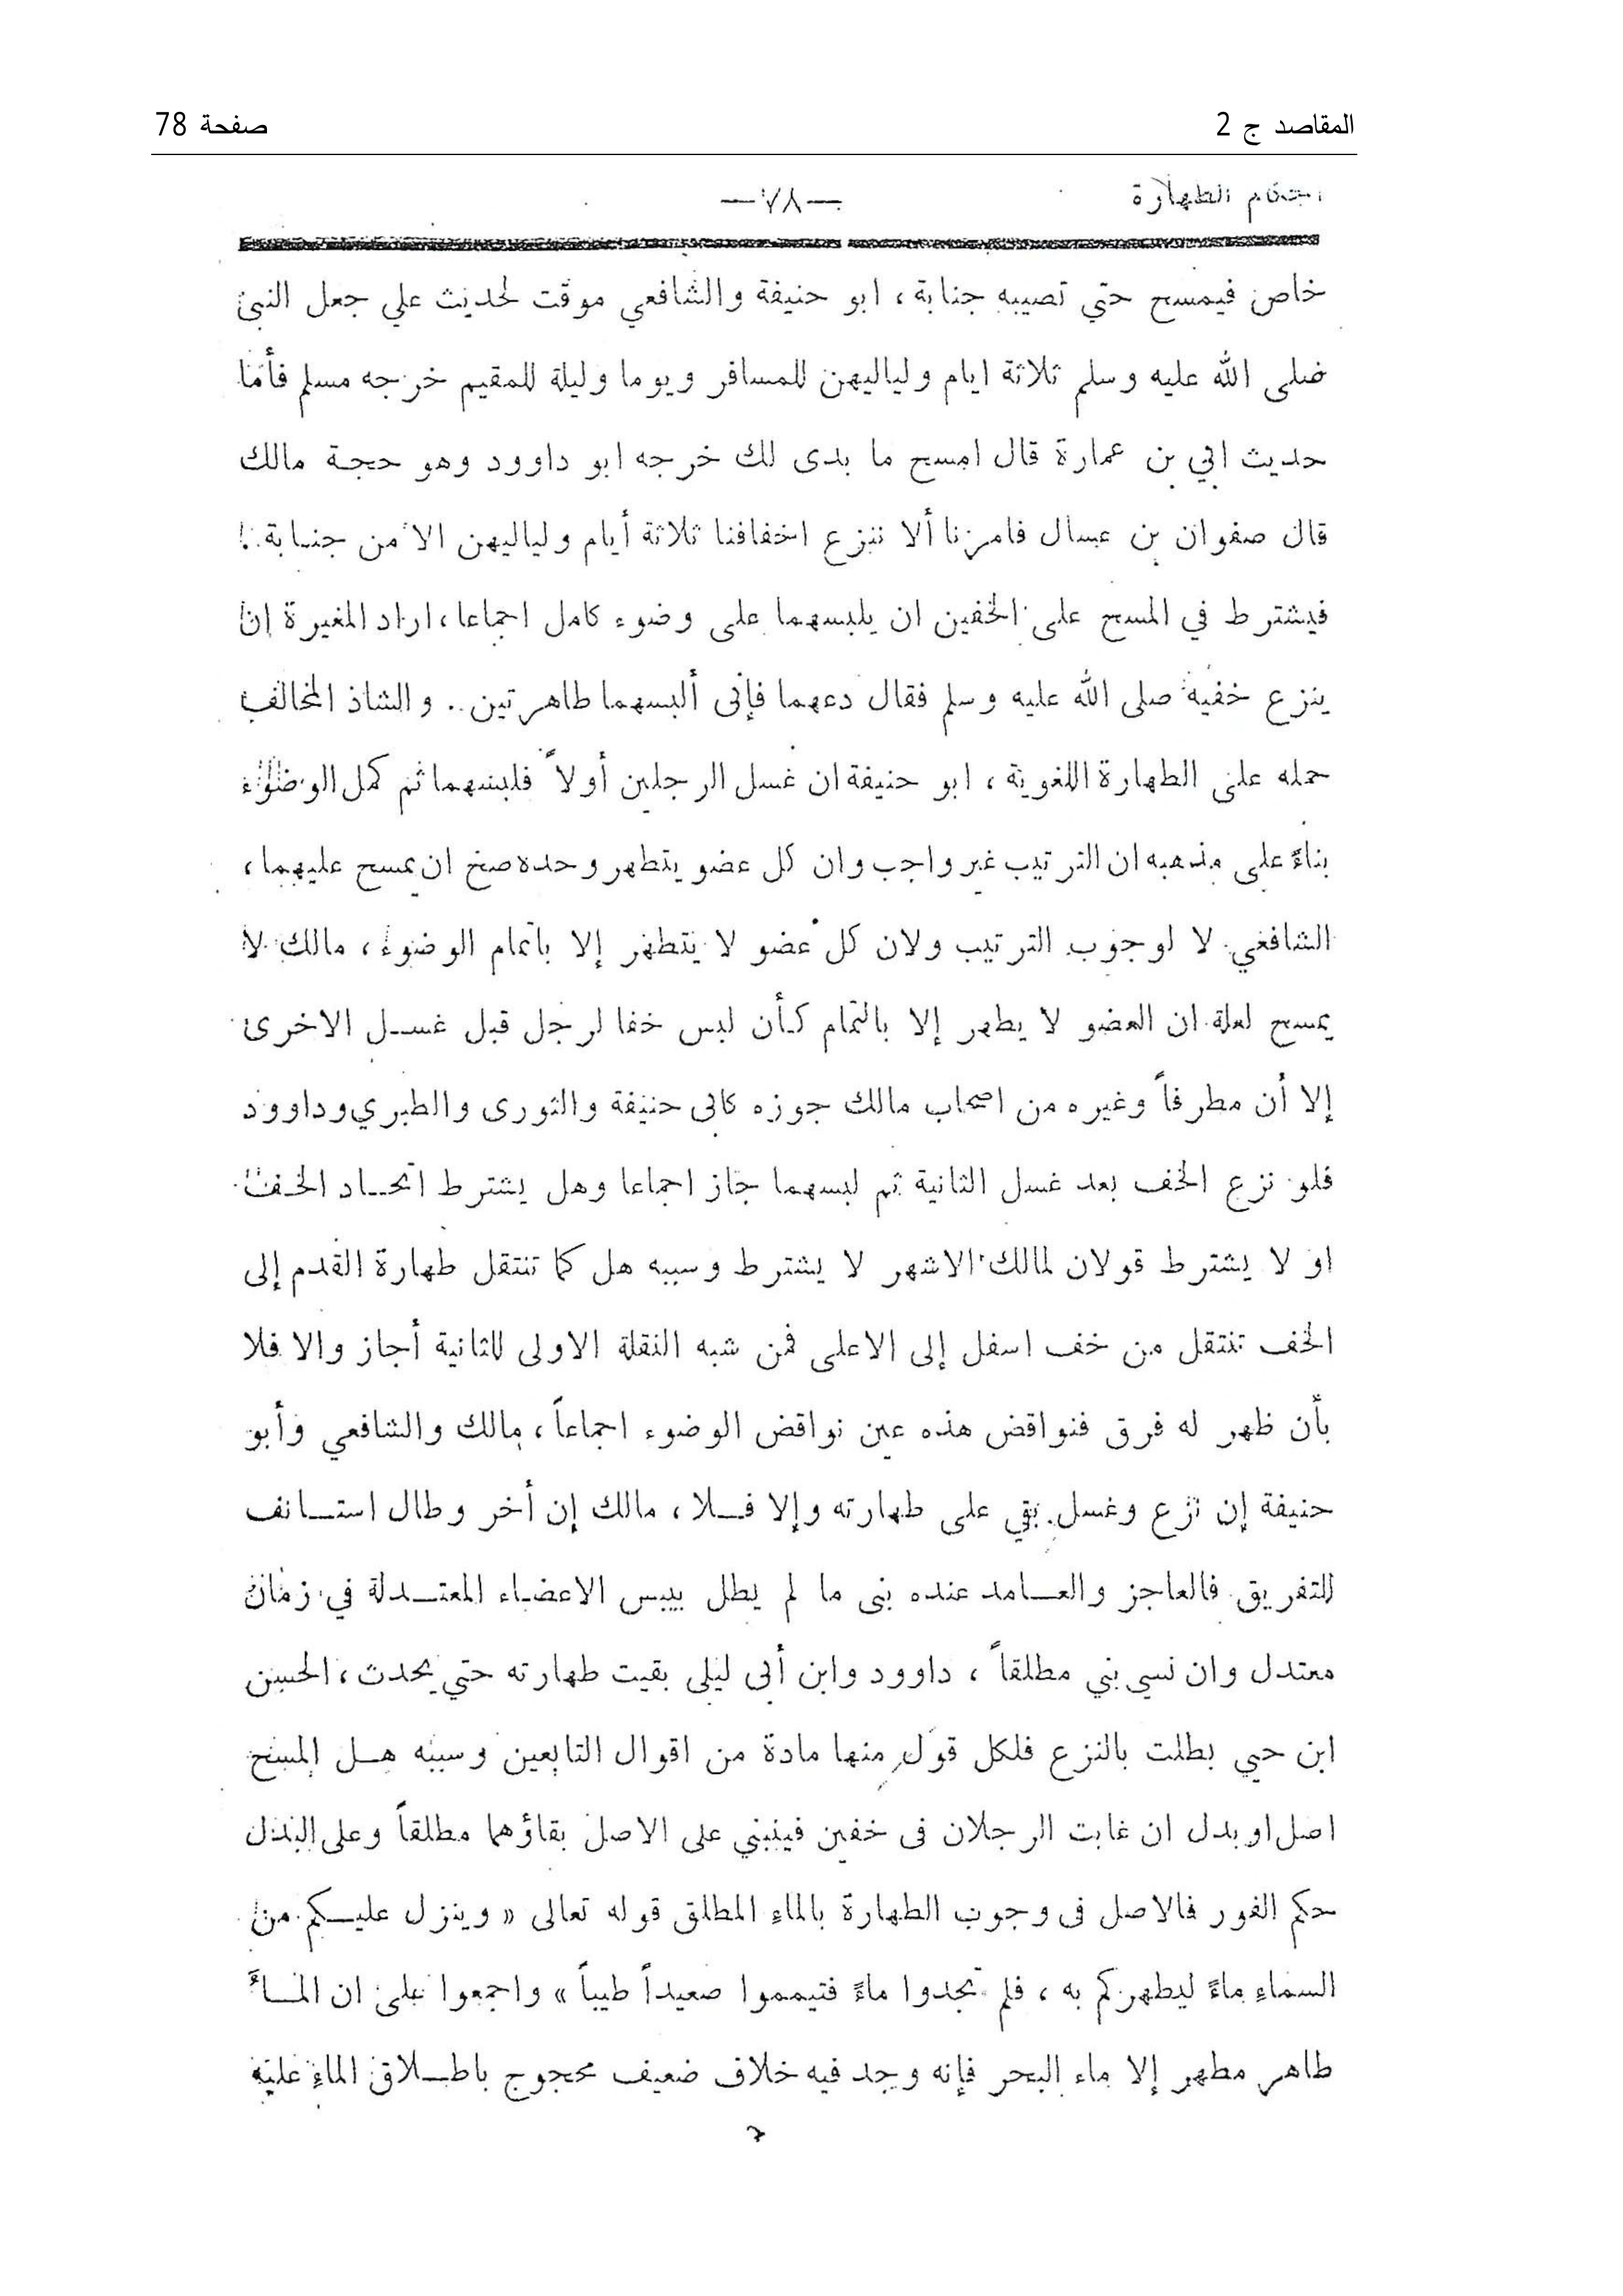 المقاصد ج 2
صفحة 78
احكام الطهارة
—٧٨—
خاص فيمسح حتي تصيبه جنابة، ابو حنيفة والشافعي موقت لحديث علي جعل النبي
صلى الله عليه وسلم ثلاثة ايام ولياليهن للمسافر ويوما وليلة للمقيم خرجه مسلم فأما
حديث ابي بن عمارة قال امسح ما بدى لك خرجه ابو داوود وهو حجة مالك
قال صفوان بن عسال فامرنا ألا ننزع اخفافنا ثلاثة أيام ولياليهن الا من جنابة.
فيشترط في المسح على الخفين ان يلبسهما على وضوء كامل اجماعا، اراد المغيرة ان
ينزع خفيه صلى الله عليه وسلم فقال دعهما فإنى ألبسهما طاهرتين.. والشاذ المخالف
حمله على الطهارة اللغوية، ابو حنيفة ان غسل الرجلين أولاً فلبسهما ثم كمل الوضوء
بناءً على مذهبه ان الترتيب غير واجب وان كل عضو يتطهر وحده صح ان يمسح عليهما،
الشافعي لا لوجوب الترتيب ولان كل عضو لا يتطهر إلا باتمام الوضوء، مالك لا
يمسح لعلة ان العضو لا يطهر إلا بالتمام كأن لبس خفا لرجل قبل غسل الاخرى
إلا أن مطرفاً وغيره من اصحاب مالك جوزه كابى حنيفة والثورى والطبري وداوود
فلو نزع الخف بعد غسل الثانية ثم لبسهما جاز اجماعا وهل يشترط اتحاد الخف
او لا يشترط قولان لمالك الاشهر لا يشترط وسببه هل كما تنتقل طهارة القدم إلى
الخف تنتقل من خف اسفل إلى الاعلى فمن شبه النقلة الاولى للثانية أجاز والا فلا
بأن ظهر له فرق فنواقض هذه عين نواقض الوضوء اجماعاً، مالك والشافعي وأبو
حنيفة إن نزع وغسل بقي على طهارته وإلا فلا، مالك إن أخر وطال استانف
للتفريق فالعاجز والعامد عنده بنى ما لم يطل بيبس الاعضاء المعتدلة في زمان
معتدل وان نسي بني مطلقاً، داوود وابن أبى ليلى بقيت طهارته حتي يحدث، الحسن
ابن حيي بطلت بالنزع فلكل قول منها مادة من اقوال التابعين وسببه هل المسح
اصل او بدل ان غابت الرجلان فى خفين فينبني على الاصل بقاؤهما مطلقاً وعلى البدل
حكم الفور فالاصل فى وجوب الطهارة بالماء المطلق قوله تعالى « وينزل عليكم من
السماء ماءً ليطهركم به، فلم تجدوا ماءً فتيمموا صعيداً طيباً » واجمعوا على ان الماءَ
طاهر مطهر إلا ماء البحر فإنه وجد فيه خلاف ضعيف محجوج باطلاق الماء عليه